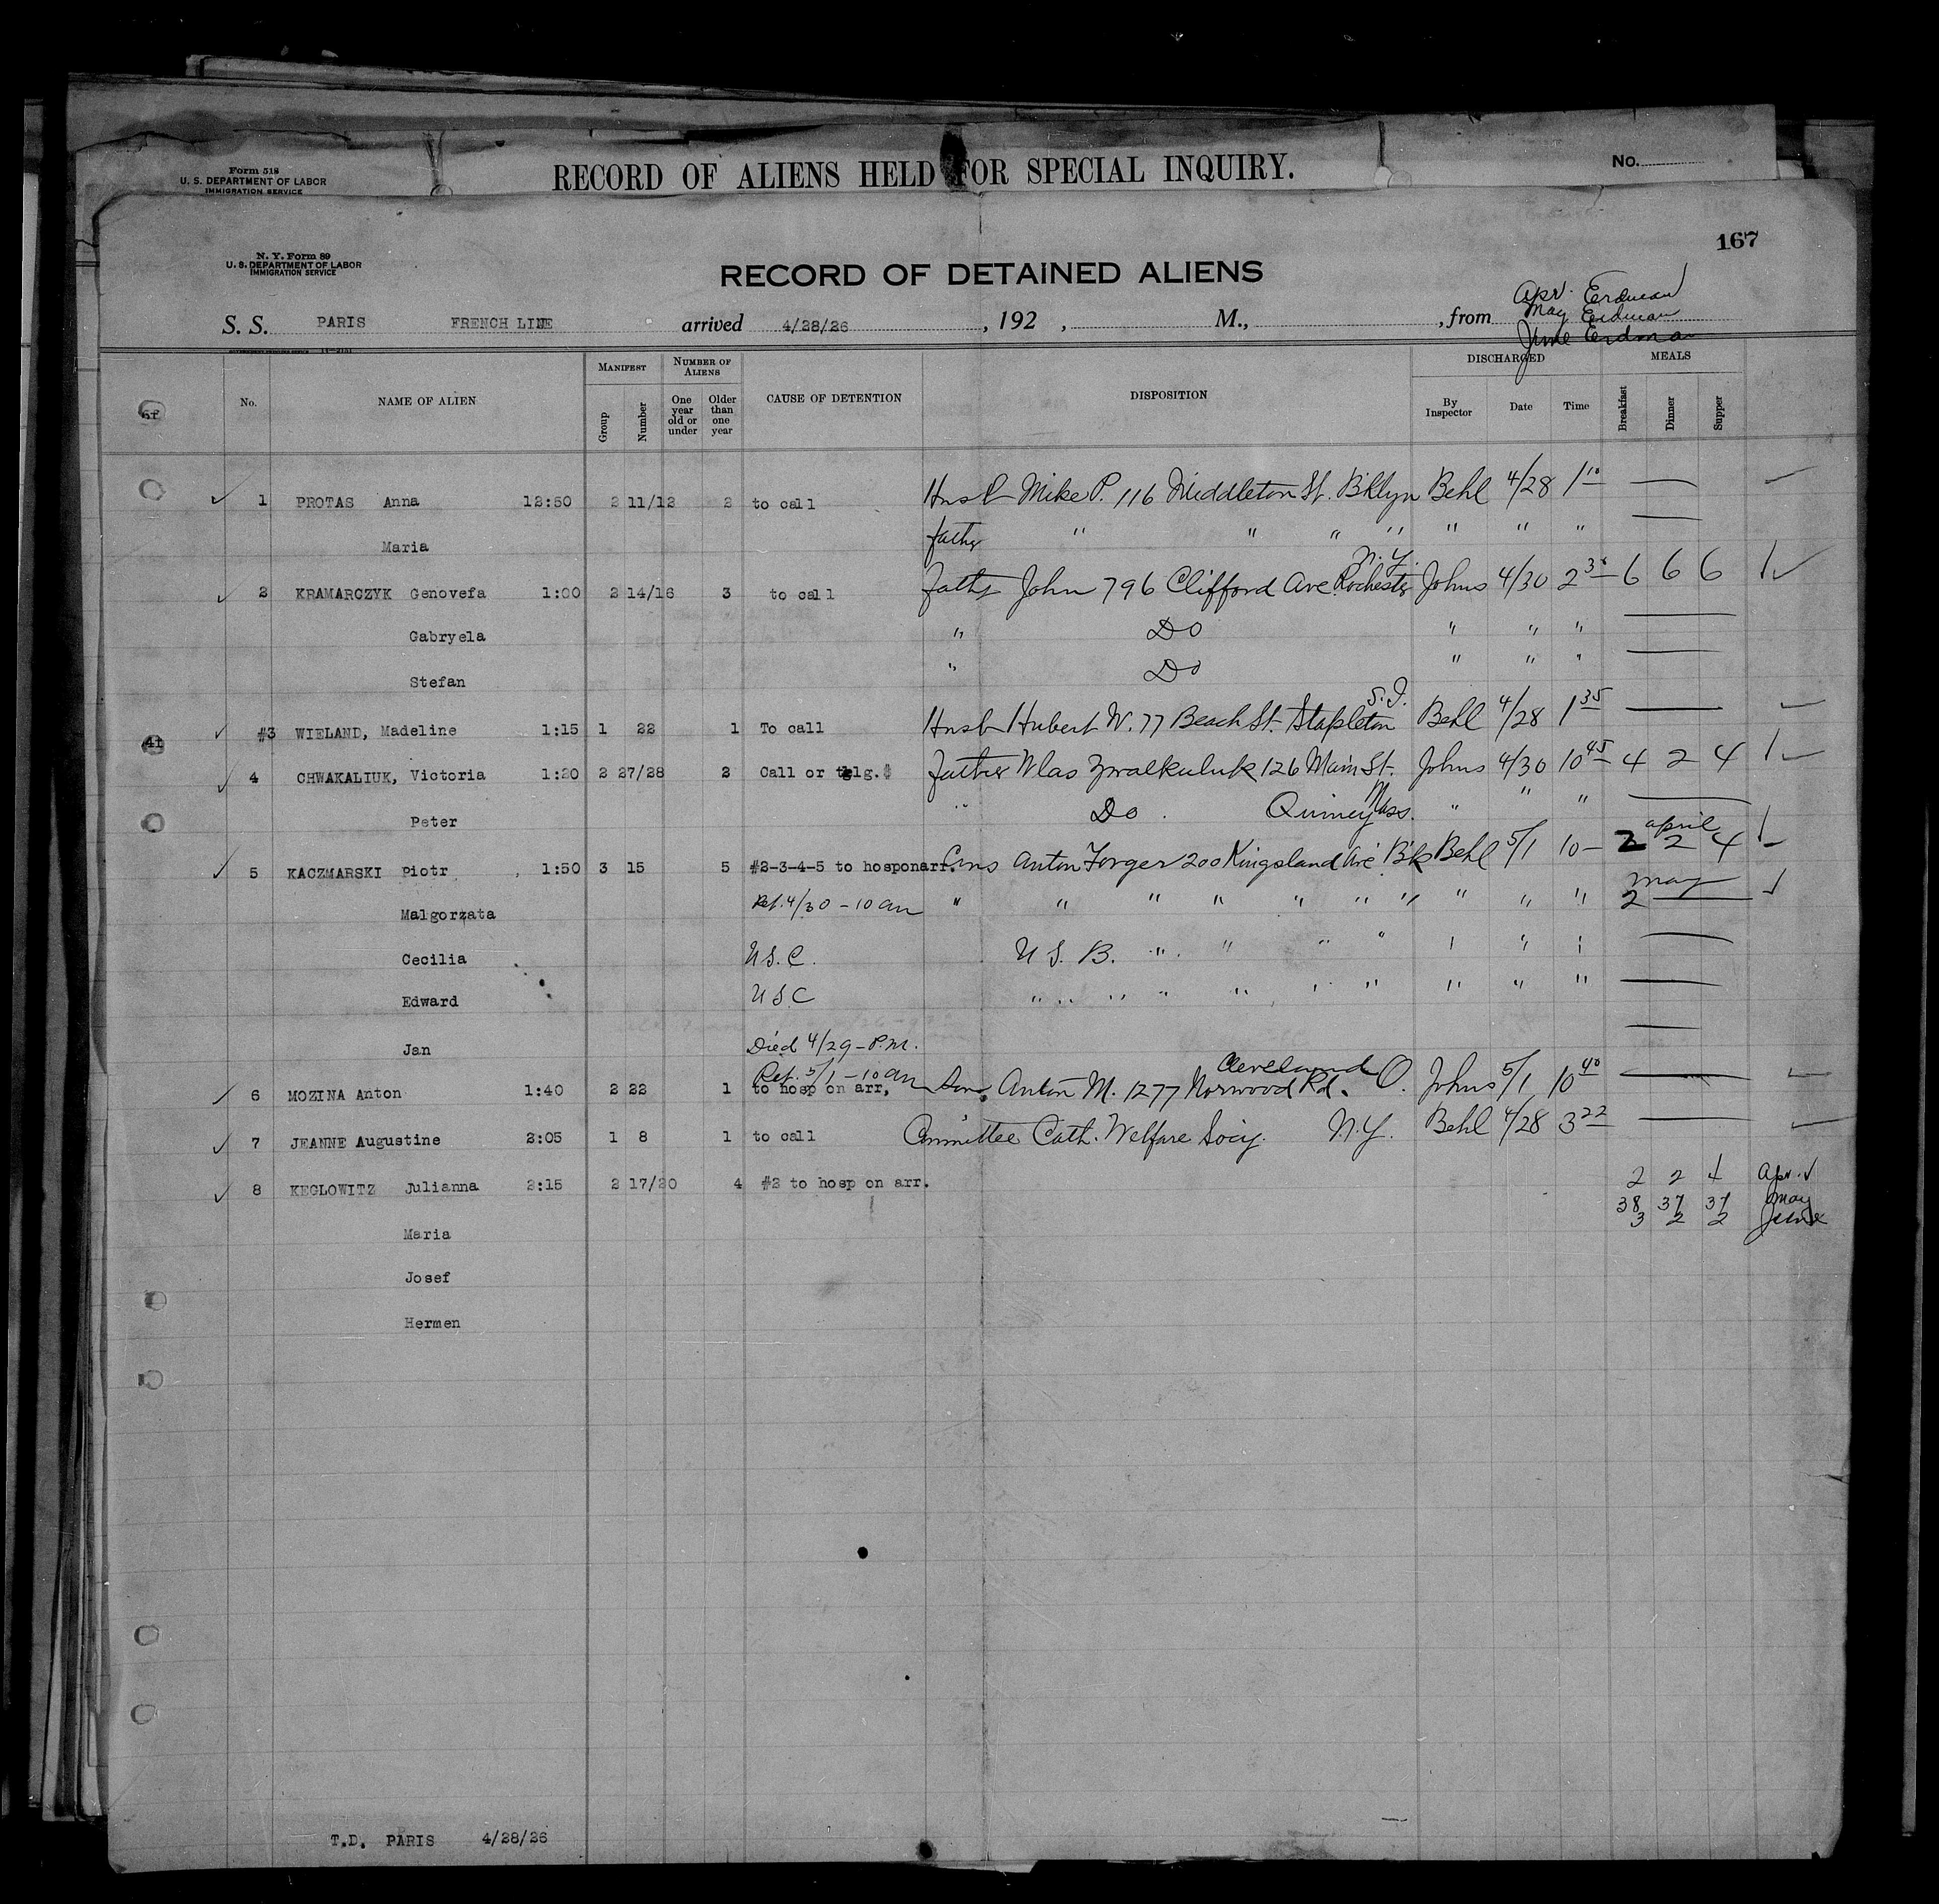 Form 518
U. S. DEPARTMENT OF LABOR
IMMIGRATION SERVICE
RECORD OF ALIENS HELD FOR SPECIAL INQUIRY.
No.
167
N. Y. Form 89
U. S. DEPARTMENT OF LABOR
IMMIGRATION SERVICE
RECORD OF DETAINED ALIENS
Apr. Erdman
May Erdman
June Erdman
S. S. PARIS FRENCH LINE arrived 4/28/26, 192 , M., , from
No. NAME OF ALIEN MANIFEST Group Number NUMBER OF ALIENS One year old or under Older than one year CAUSE OF DETENTION DISPOSITION DISCHARGED By Inspector Date Time MEALS Breakfast Dinner Supper
1 PROTAS Anna 12:50 2 11/12 2 to call Husb Mike P. 116 Middleton St. Bklyn Behl 4/28 1 10 —
Maria father " " " " " " " —
2 KRAMARCZYK Genovefa 1:00 2 14/16 3 to call father John 796 Clifford Ave. Rochester N.Y. Johns 4/30 2 6 6 6
Gabryela " Do " " " —
Stefan " Do " " " —
#3 WIELAND, Madeline 1:15 1 22 1 To call Husb Hubert W. 77 Beach St. Stapleton S.I. Behl 4/28 1 35 —
4 CHWAKALIUK, Victoria 1:20 2 27/28 2 Call or tlg. Father Wlas 126 Main St. Johns 4/30 10 45 4 2 4
Peter " Do. Quincy Mass. " " " —
5 KACZMARSKI Piotr 1:50 3 15 5 #2-3-4-5 to hosponarr. Cous Anton Forger 200 Kingsland Ave Bk Behl 5/1 10 — april 2 2 4
Malgorzata Ret. 4/30 - 10 am " " " " " " " " " " " may 2 —
Cecilia U.S.C. U S. B. " " " " " —
Edward U S C " " " " " " " " " " —
Jan Died 4/29 - P.M. —
Ret. 5/1 - 10 am
6 MOZINA Anton 1:40 2 22 1 to hosp on arr, Son, Anton M. 1277 Norwood Rd. Cleveland O. Johns 5/1 10 40 —
7 JEANNE Augustine 2:05 1 8 1 to call Committee Cath. Welfare Socy. N.Y. Behl 4/28 3 22 —
8 KEGLOWITZ Julianna 2:15 2 17/20 4 #2 to hosp on arr. 2 2 4 Apr.
38 37 37 May
3 2 2 June
Maria
Josef
Hermen
T.D. PARIS 4/28/26